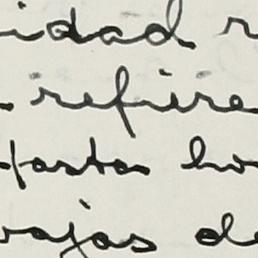 idad r
refiere
fasta ho
ajas de